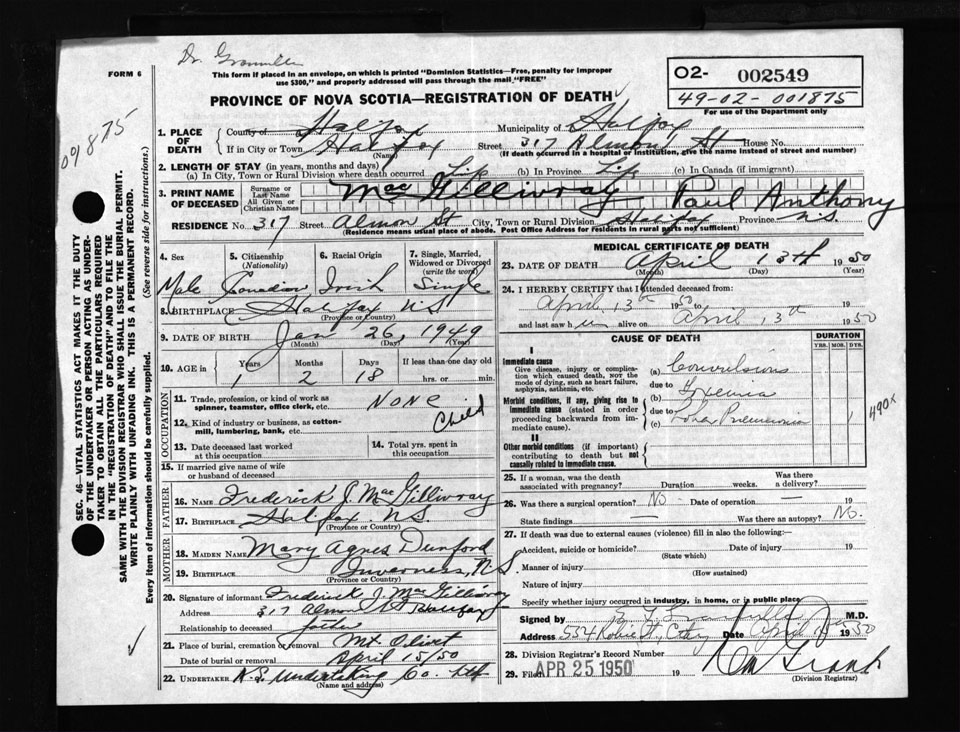 Dr. Granville
FORM 6
This form if placed in an envelope, on which is printed "Dominion Statistics—Free, penalty for improper
use $300," and properly addressed will pass through the mail "FREE"
O2- 002549
49-02-001875
For use of the Department only
PROVINCE OF NOVA SCOTIA—REGISTRATION OF DEATH
09875
1. PLACE OF DEATH
County of Halifax Municipality of Halifax
If in City or Town Halifax (Name) Street 317 Almon St House No.
(If death occurred in a hospital or institution, give the name instead of street and number)
2. LENGTH OF STAY (in years, months and days)
(a) In City, Town or Rural Division where death occurred Life (b) In Province Life (c) In Canada (if immigrant)
3. PRINT NAME OF DECEASED
Surname or Last Name
All Given or Christian Names
MacGillivray Paul Anthony
RESIDENCE No. 317 Street Almon St City, Town or Rural Division Halifax Province N.S.
(Residence means usual place of abode. Post Office Address for residents in rural parts not sufficient)
4. Sex 5. Citizenship (Nationality) 6. Racial Origin 7. Single, Married, Widowed or Divorced (write the word)
Male Canadian Irish Single
8. BIRTHPLACE Halifax NS
(Province or Country)
9. DATE OF BIRTH Jan 26, 1949
(Month) (Day) (Year)
10. AGE in Years Months Days If less than one day old
1 2 18 hrs. or min.
OCCUPATION
11. Trade, profession, or kind of work as spinner, teamster, office clerk, etc. NONE
12. Kind of industry or business, as cotton-mill, lumbering, bank, etc. Child
13. Date deceased last worked at this occupation
14. Total yrs. spent in this occupation
15. If married give name of wife or husband of deceased
FATHER
16. NAME Frederick J. MacGillivray
17. BIRTHPLACE Halifax N.S.
(Province or Country)
MOTHER
18. MAIDEN NAME Mary Agnes Dunford
19. BIRTHPLACE Inverness, N.S.
(Province or Country)
20. Signature of informant Frederick J. MacGillivray
Address 317 Almon St Halifax
Relationship to deceased father
21. Place of burial, cremation or removal Mt. Olivet
Date of burial or removal April 15/50
22. UNDERTAKER N.S. Undertaking Co. Ltd
(Name and address)
MEDICAL CERTIFICATE OF DEATH
23. DATE OF DEATH April 13th 1950
(Month) (Day) (Year)
24. I HEREBY CERTIFY that I attended deceased from
April 13th 1950 to 19
and last saw him alive on April 13th 1950
CAUSE OF DEATH
DURATION
YRS. MOS. DYS.
I
Immediate cause
Give disease, injury or complication which caused death, NOT the mode of dying, such as heart failure, asphyxia, asthenia, etc.
(a) Convulsions
due to
Morbid conditions, if any, giving rise to immediate cause (stated in order proceeding backwards from immediate cause).
(b)
due to
(c) Lobar Pneumonia 1 490x
II
Other morbid conditions (if important) contributing to death but not causally related to immediate cause.
25. If a woman, was the death associated with pregnancy? Duration weeks. Was there a delivery?
26. Was there a surgical operation? No Date of operation 19
State findings — Was there an autopsy? No.
27. If death was due to external causes (violence) fill in also the following:—
Accident, suicide or homicide? Date of injury 19
(State which)
Manner of injury
(How sustained)
Nature of injury
Specify whether injury occurred in industry, in home, or in public place
Signed by M.D.
Address 534 Robie St City Date April 1950
28. Division Registrar's Record Number
29. Filed APR 25 1950 19
(Division Registrar)
SEC. 46—VITAL STATISTICS ACT MAKES IT THE DUTY
OF THE UNDERTAKER OR PERSON ACTING AS UNDER-
TAKER TO OBTAIN ALL THE PARTICULARS REQUIRED
IN THE "REGISTRATION OF DEATH" AND TO FILE THE
SAME WITH THE DIVISION REGISTRAR WHO SHALL ISSUE THE BURIAL PERMIT.
WRITE PLAINLY WITH UNFADING INK. THIS IS A PERMANENT RECORD.
Every item of information should be carefully supplied. (See reverse side for instructions.)